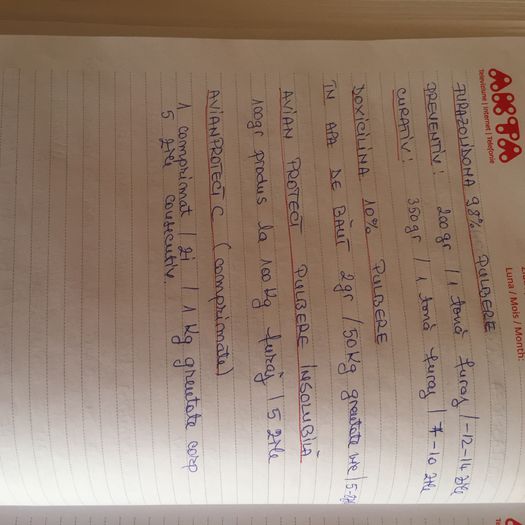 AKTA
Televiziune | Internet | Telefonie
Luna / Mois / Month:
FURAZOLIDONA 98% PULBERE
PREVENTIV: 200gr / 1 tonă furaj / -12-14 zile
CURATIV: 350gr / 1 tonă furaj / 7-10 zile
DOXICILINA 10% PULBERE
ÎN APA DE BĂUT 2gr / 50 Kg greutate vie / 5-
AVIAN PROTECT PULBERE INSOLUBILĂ
100gr produs la 100 Kg furaj / 5 zile
AVIANPROTECT C (comprimate)
1 comprimat / zi / 1 Kg greutate corp
5 zile consecutiv.